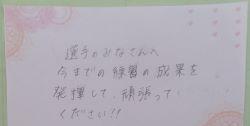 選手のみなさんへ
今までの練習の成果を
発揮して、頑張って
ください!!